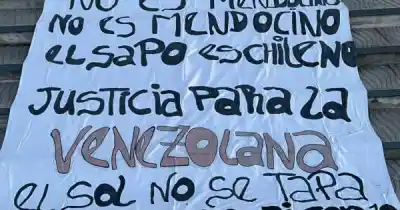 NO ES MENDOCINO
NO ES MENDOCINO
EL SAPO ES CHILENO
JUSTICIA PARA LA
VENEZOLANA
EL SOL NO SE TAPA